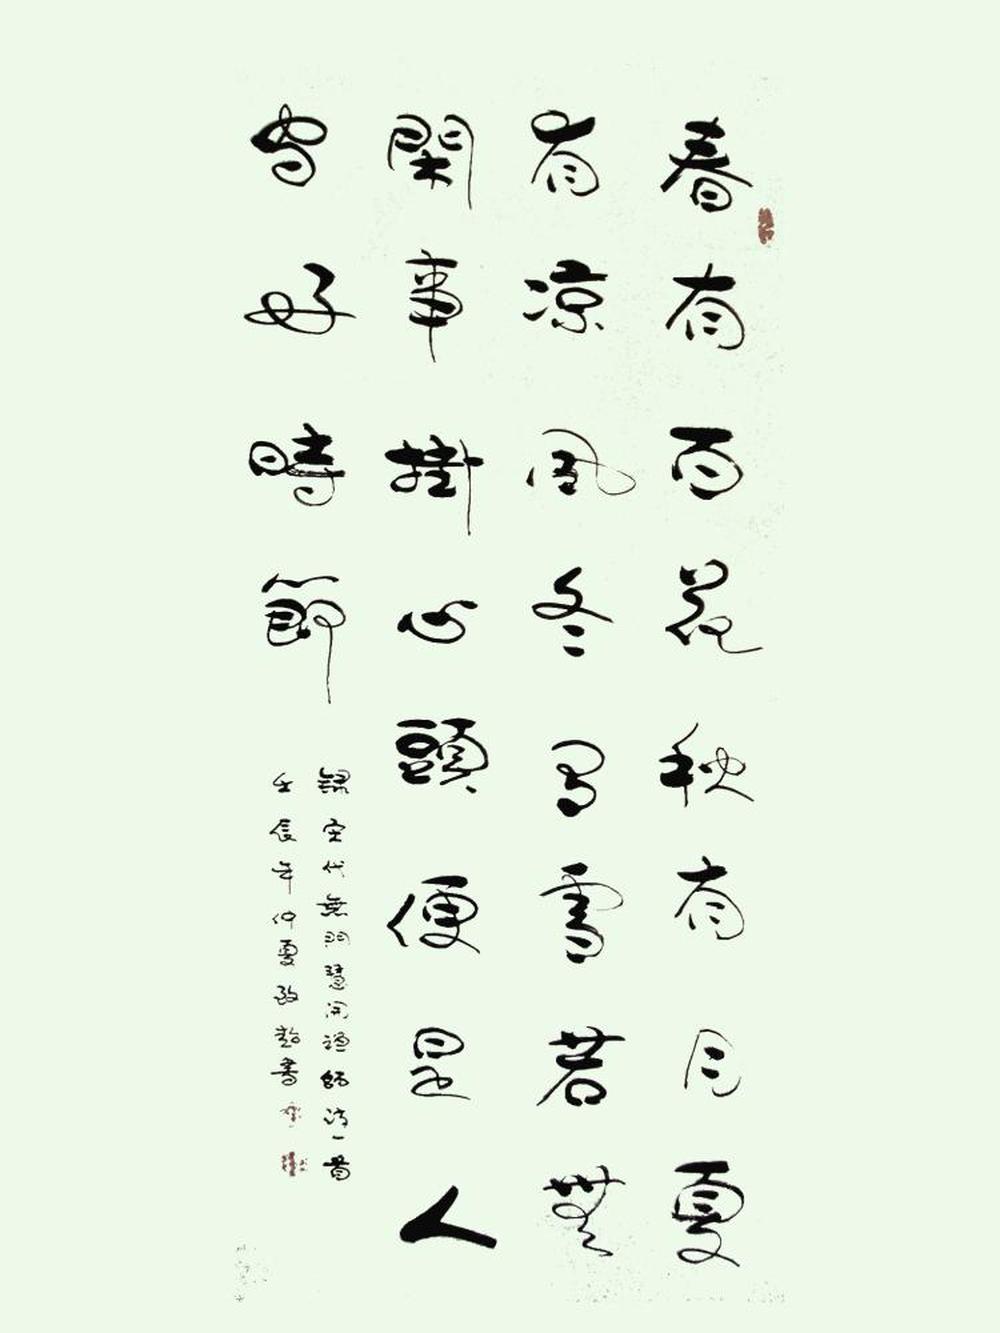 春有百花秋有月夏
有凉風冬有雪若無
閑事掛心頭便是人
間好時節
錄宋代無門慧開禪師詩一首
壬辰年仲夏書